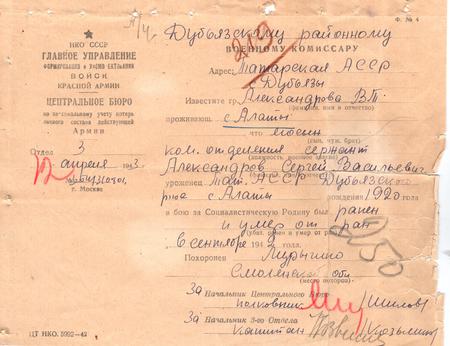 Ф. № 4
НКО СССР
ГЛАВНОЕ УПРАВЛЕНИЕ
ФОРМИРОВАНИЯ и УКОМПЛЕКТОВАНИЯ
ВОЙСК
КРАСНОЙ АРМИИ
ЦЕНТРАЛЬНОЕ БЮРО
по персональному учету потерь
личного состава действующей
Армии
Отдел 3
12 апреля 1943
г. Москва
Дубьязскому районному
ВОЕННОМУ КОМИССАРУ
213
Адрес: Татарская АССР
с Дубьязы
Известите гр. Александрова В.Т.
(фамилия, имя и отчество)
проживающ. с Алаты
что его сын
(сын, муж, брат)
ком. отделения сержант
Александров Сергей Васильевич
уроженец Тат. АССР Дубьязского
р-на с Алаты рождения 1920 года
в бою за Социалистическую Родину был ранен
и умер от ран
(убит, ранен и умер от ран)
6 сентября 1942
Похоронен
Смоленской обл
(место похорон)
За Начальник Центрального Бюро
полковник /Шилов/
За Начальник 3-го Отдела
капитан
ЦТ НКО. 5992—42